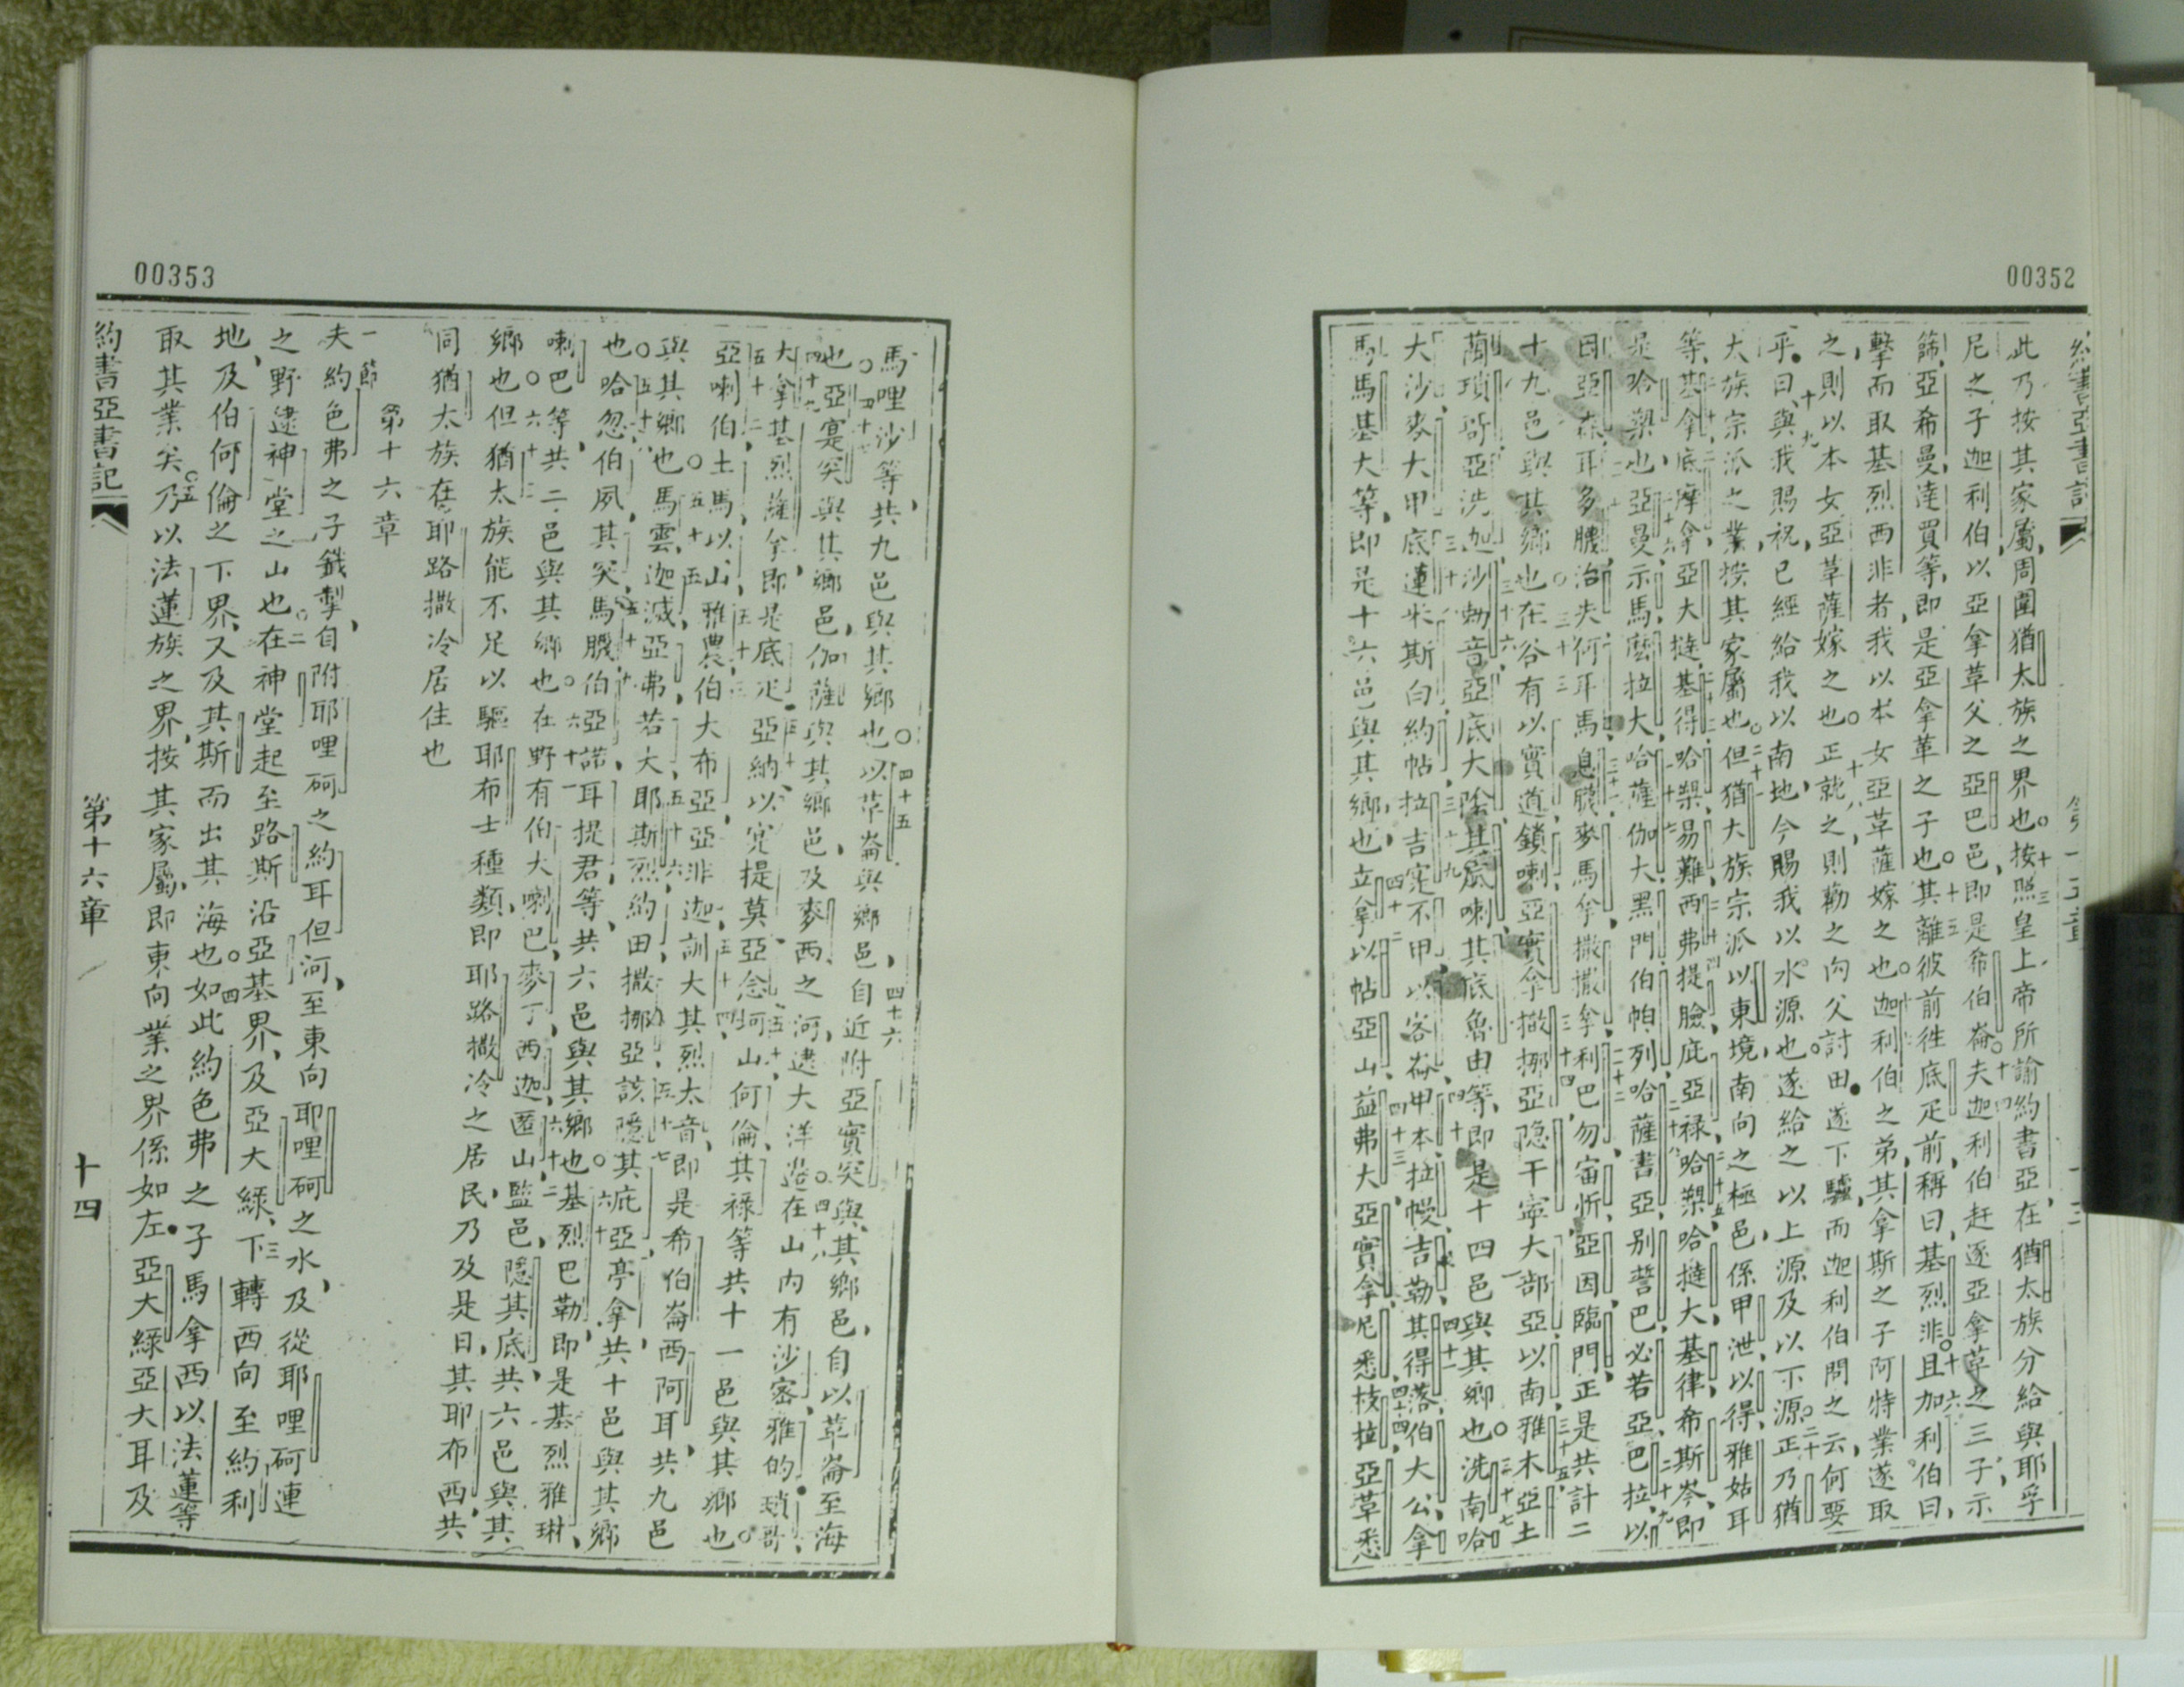 00352
約書亞書記
此乃按其家屬周圍猶太族之界也○十三按照皇上帝所諭約書亞在猶太族分給與耶孚
尼之子迦利伯以亞拿草父之亞巴邑即是希伯崙○十四夫迦利伯赶逐亞拿草之三子示
篩亞希曼達買等即是亞拿革之子也○十五其離彼前徃底疋前稱曰基烈非○十六且加利伯曰
擊而取基烈西非者我以本女亞草薩嫁之也○十七迦利伯之弟其拿斯之子阿特業遂取
之則以本女亞草薩嫁之也○十八正就之則勸之向父討田遂下驢而迦利伯問之云何要
乎○十九曰與我賜祝已經給我以南地今賜我以水源也遂給之以上源及以下源○二十正乃猶
大族宗派之業按其家屬也○二十一但猶大族宗派以東境南向之極邑係甲泄以得雅姑耳
等基拿底摩拿亞大撻基得哈槊易難西弗提臉庇亞祿哈槊哈撻大基律希斯岑即
是哈槊也亞曼示馬麼拉大哈薩伽大黑門伯帕列哈薩書亞別誓巴必若亞巴拉以
因亞森耳多臘洽夫何耳馬息臘麥馬拿撒撒拿利巴勿宙忻亞因臨門正是共計二
十九邑與其鄉也○三十三在谷有以實道鎖喇亞實拿撒挪亞隐干寧大部亞以南雅木亞土
藺瑣哥亞洗迦沙勉音亞底大陰其底喇其底魯由等即是十四邑與其鄉也○三十七洗南哈
大沙麥大甲底蓮米斯白約帖拉吉寔不甲以客崙甲本拉幔吉勒其得落伯大公拿
馬馬基大等即是十六邑與其鄉也立拿以帖亞山益弗大亞實拿尼悉枝拉亞草悉
00353
馬哩沙等共九邑與其鄉也○四十五以革崙與鄉邑四十六自近附亞實突與其鄉邑自以革崙至海
也○四十七亞寔突與其鄉邑伽薩與其鄉邑及麥西之河逮大洋澨○四十八在山內有沙密雅的瑣哥
大拿基烈薩拿即是底疋亞納以寔提莫亞念坷山何倫其祿等共十一邑與其鄉也○
五十二亞喇伯土馬以山雅農伯大布亞亞非迦訓大其烈太音即是希伯崙西阿耳共九邑
與其鄉也○五十五馬雲迦滅亞弗若大耶斯烈約田撒挪亞該隱其庇亞亭拿共十邑與其鄉
也○五十八哈忽伯夙其突馬臘伯亞諾耳提君等共六邑與其鄉也○六十基烈巴勒即是基烈雅琳
喇巴等共二邑與其鄉也○六十一在野有伯大喇巴麥丁西迦匿山監邑隱其底共六邑與其
鄉也○六十三但猶太族能不足以驅耶布士種類即耶路撒冷之居民乃及是日其耶布西共
同猶太族在耶路撒冷居住也
第十六章
一節夫約色弗之子鐵掣自附耶哩砢之約耳但河至東向耶哩砢之水及從耶哩砢連
之野逮神堂之山也○二在神堂起至路斯沿亞基界及亞大綠三下轉西向至約利
地及伯何倫之下界又及其斯而出其海也○四如此約色弗之子馬拿西以法蓮等
取其業矣○五乃以法蓮族之界按其家屬即東向業之界係如左亞大綠亞大耳及
約書亞書記
第十六章
十四